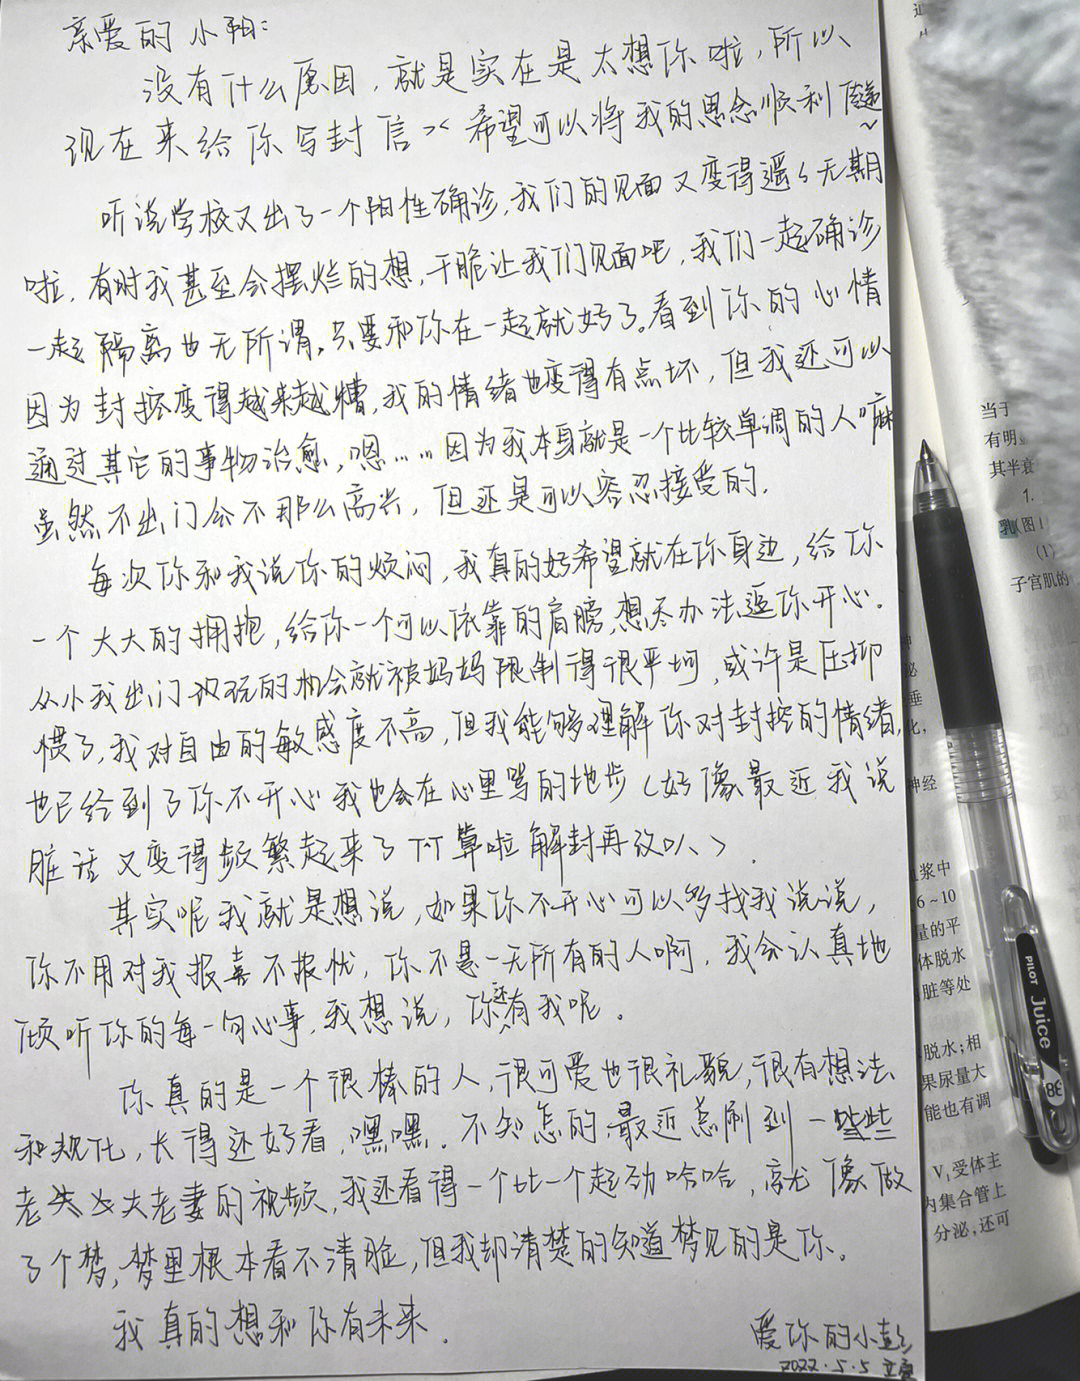 亲爱的小阳:
没有什么原因,就是实在是太想你啦,所以
现在来给你写封信>< 希望可以将我的思念顺利传递~
听说学校又出了一个阳性确诊,我们的见面又变得遥遥无期
啦,有时我甚至会摆烂的想,干脆让我们见面吧,我们一起确诊
一起隔离也无所谓,只要和你在一起就好了。看到你的心情
因为封控变得越来越糟,我的情绪也变得有点坏,但我还可以
通过其它的事物治愈,嗯……因为我本身就是一个比较单调的人嘛
虽然不出门会不那么高兴,但还是可以容忍接受的.
每次你和我说你的烦闷,我真的好希望就在你身边,给你
一个大大的拥抱,给你一个可以依靠的肩膀,想尽办法逗你开心.
从小我出门放玩的机会就被妈妈限制得很平坷,或许是压抑
惯了,我对自由的敏感度不高,但我能够理解你对封控的情绪,
也已经到了你不开心我也会在心里骂的地步(好像最近我说
脏话又变得频繁起来了TT算啦解封再改叭).
其实呢我就是想说,如果你不开心可以多找我说说,
你不用对我报喜不报忧,你不是一无所有的人啊,我会认真地
倾听你的每一句心事,我想说,你还有我呢。
你真的是一个很棒的人,很可爱也很礼貌,很有想法
和规化,长得还好看,嘿嘿.不知怎的,最近总刷到一些些
老夫老妻的视频,我还看得一个比一个起劲哈哈,就像做
了个梦,梦里根本看不清脸,但我却清楚的知道梦见的是你。
我真的想和你有未来.
爱你的小彭
2022.5.5 立夏
当于
有明
其半衰
1.
乳(图1
(1)
子宫肌的
泌
垂
化,
神经
浆中
6~10
量的平
体脱水
脏等处
脱水;相
果尿量大
能也有调
V₁受体主
内集合管上
分泌,还可
PILOT Juice
38